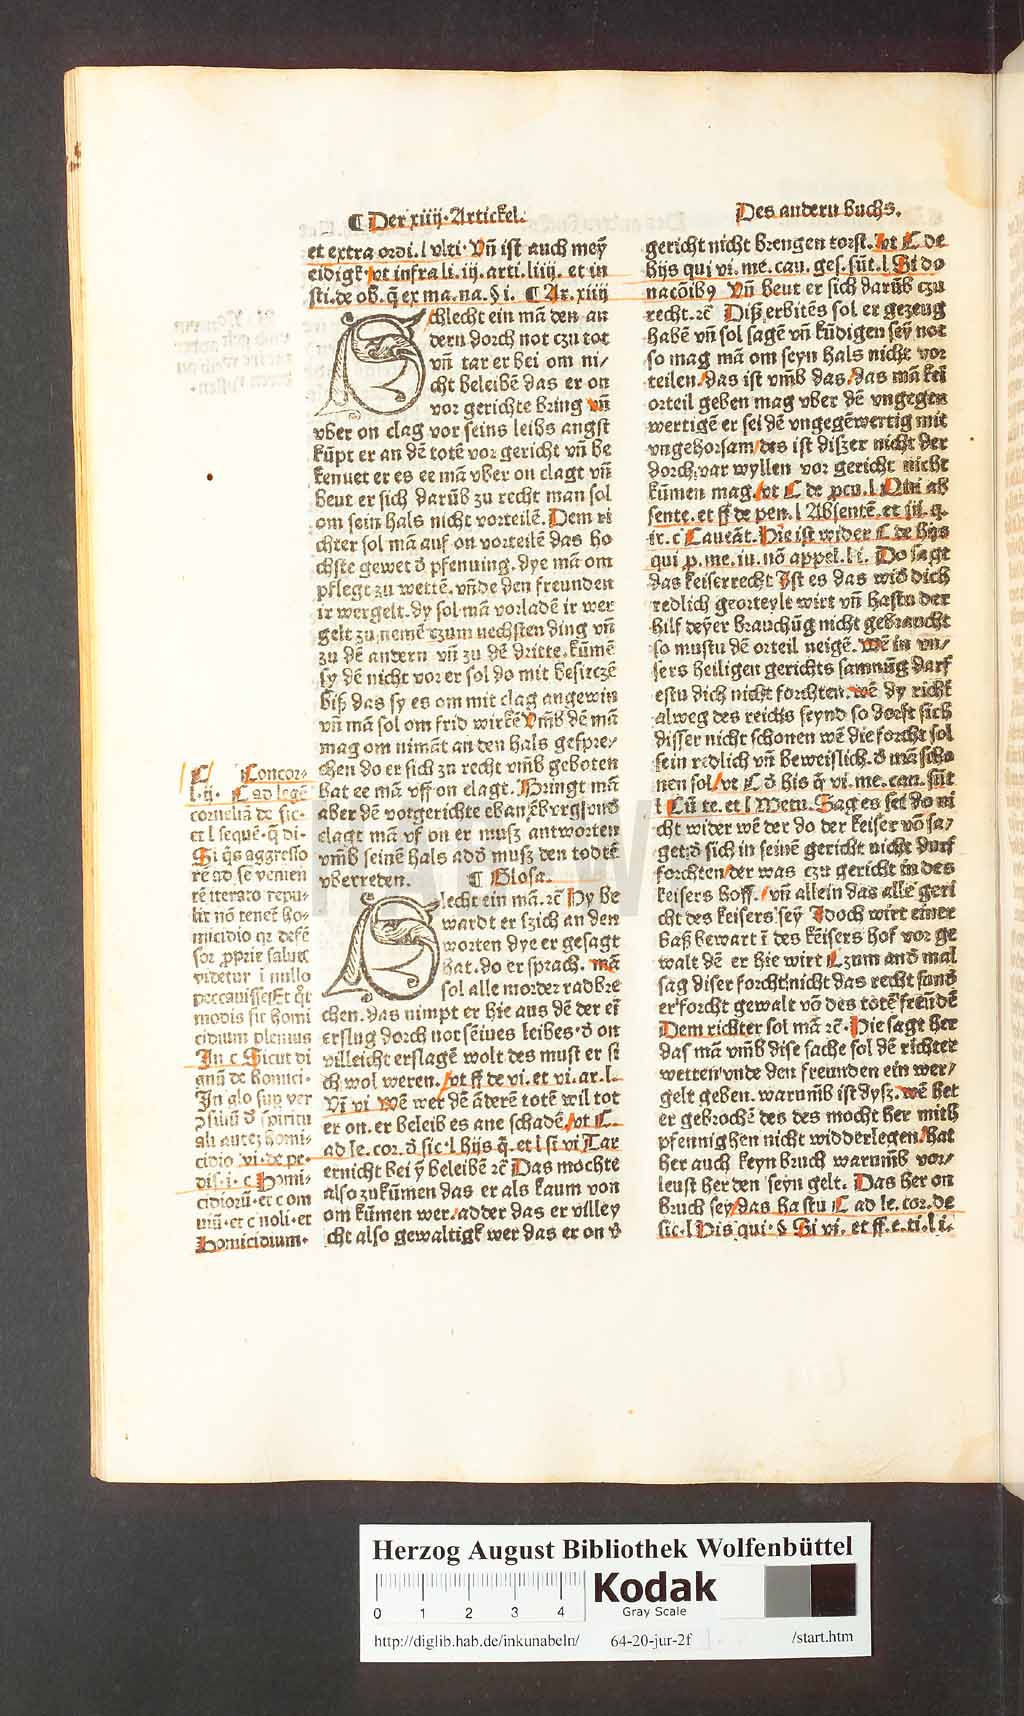 ¶ Der xiiij. Artickel.
Des andern buchs.
et extra ordi. l vlti. Vñ ist auch mey
eidigk vt infra li. iij. arti. liiij. et in
sti. de ob. q̃ ex ma. na. § i. ¶ Ar. xiiij
Schlecht ein mã den an
dern dorch not czu tot
vñ tar er bei om ni/
cht beleibẽ das er on
vor gerichte bring vñ
vber on clag vor seins leibs angst
kũpt er an dẽ totẽ vor gericht vñ be
kennet er es ee mã vber on clagt vñ
beut er sich darũb zu recht man sol
om sein hals nicht vorteilẽ. Dem ri
chter sol mã auf on vorteilẽ das ho
chste gewet d̕ pfenning. dye mã om
pflegt zu wettẽ. vñde den freunden
ir wergelt. dy sol mã vorladẽ ir wer
gelt zu nemẽ czum nechsten ding vñ
zu dẽ andern vñ zu dẽ dritte. kũmẽ
sy dẽ nicht vor er sol do mit besitczẽ
biß das sy es om mit clag angewin
vñ mã sol om frid wirkẽ Vm̃b dẽ mã
mag om nimãt an den hals gespre/
chen do er sich zu recht vm̃b geboten
hat ee mã vff on clagt. Bringt mã
aber dẽ vorgerichte
clagt mã vf on er musz antworten
vm̃b seinẽ hals add̕ musz den todtẽ
vberreden. ¶ Glosa.
Slecht ein mã. ꝛc̃ Hy be
wardt er szich an den
worten dye er gesagt
hat. do er sprach. mã
sol alle morder radbre
chen. das nimpt er hie aus dẽ der eĩ
erslug dorch not seines leibes. d̕ on
villeicht erslagẽ wolt des must er si
ch wol weren. vt ff de vi. et vi. ar. l.
Vĩ vi Wẽ wer dẽ ãderẽ totẽ wil tot
er on. er beleib es ane schadẽ vt C
ad le. cor. d̕ sic. l hijs q̃. et l si. vi Tar
er nicht bei ỹ beleibẽ ꝛc̃ Das mochte
also zukũmen das er als kaum von
om kũmen wer. adder das er villey
cht also gewaltigk wer das er on v̕
C Concor.
l. ij. C ad legẽ
corneliã de sic.
et l sequẽ. q̃ di.
Si q̃s aggresso
rẽ ad se venien
tẽ iterato repu-
lit nõ tenet̃ ho-
micidio qr defẽ
sor ꝓprie salutꝭ
videtur ĩ nullo
peccauisse Et q̃t
modis sit homi
cidium plenius
In c Sicut di
gnũ de homici.
In glo sup ver
ꝯsuũ d̕ spiritu
ali autez homi-
cidio vi. de pe.
dis. i. c Homi-
cidiorũ. et c om
niũ. et c noli. et
Homicidium.
gericht nicht brengen torst. vt C de
hijs qui vi. me. cau. ges. sũt. l Si do
nacõib9 Vñ beut er sich darũb czu
recht. ꝛc̃ Diß erbitẽs sol er gezeug
habẽ vñ sol sagẽ vñ kũdigen seỹ not
so mag mã om seyn hals nicht vor
teilen das ist vm̃b das das mã kei
orteil geben mag vber dẽ vngegen
wertigẽ er sei dẽ vngegẽwertig mit
vngehorsam des ist diszer nicht der
dorch var wyllen vor gericht nicht
kũmen mag vt C de ꝓcu. l Qui ab
sente. et ff de pen. l Absentẽ. et iij. q.
ix. c Caueãt. Hie ist wider C de hijs
qui ꝓ. me. iu. nõ appel. l i. Do sagt
das keiser recht Jst es das wid̕ dich
redlich georteylt wirt vñ hastu der
hilf deỹer brauchũg nicht gebraucht
so mustu dẽ orteil neigẽ. Wẽ in vn/
sers heiligen gerichts samnũg darf
estu dich nicht forchten. wẽ dy richt
alweg des reichs seynd so dorft sich
disser nicht schonen wẽ die forcht sol
sein redlich vñ beweislich. d̕ mã scho
nen sol vt C d̕ his q̃ vi. me. cau. sũt
l Cũ te. et l Metu. Sag es sei do ni
cht wider wẽ der do der keiser võ sa/
get d̕ sich in seinẽ gericht nicht durf
forchten der was czu gericht in des
keisers hoff. vñ allein das alle geri
cht des keisers seỹ Jdoch wirt einer
baß bewart ĩ des kẽisers hof vor ge
walt dẽ er hie wirt Czum and̕ mal
sag diser forcht nicht das recht sund̕
er forcht gewalt võ des totẽ freũdẽ
Dem richter sol mã ꝛc̃. Hie sagt her
das mã vm̃b dise sache sol dẽ richter
wetten vnde den freunden ein wer/
gelt geben. warum̃b ist dysz. wẽ het
er gebrochẽ des des mocht her mith
pfennighen nicht widderlegen hat
her auch keyn bruch warum̃b vor/
leust her den seyn gelt. Das her on
bruch sey das hastu C ad le. cor. de
sic. l His qui. § Si vi. et ff. e. ti. l i.
Herzog August Bibliothek Wolfenbüttel
0 1 2 3 4
Kodak
Gray Scale
http://diglib.hab.de/inkunabeln/ 64-20-jur-2f /start.htm
HAB WF